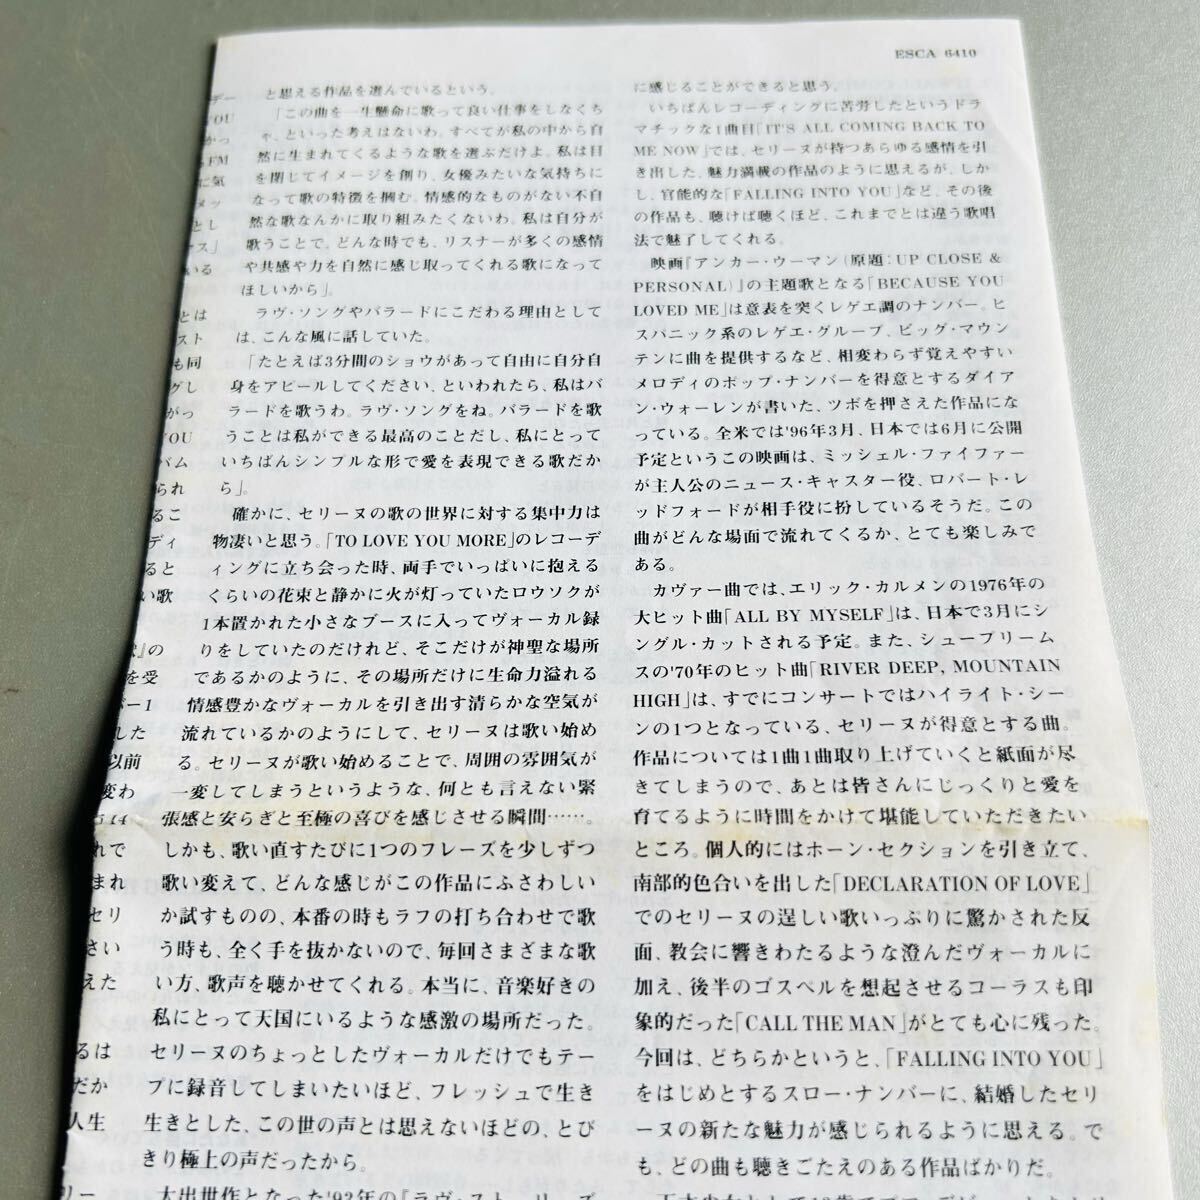 ESCA 6410
デー
YOU
かっ
FM
に気
メッ
とし
ース」
いる
とは
スト
も同
グし
がっ
YOU
バム
られ
るこ
ディ
ると
い歌
』の
を受
バー1
した
以前
変わ
れで
まれ
セリ
さい
えた
るは
だか
人生
リー
と思える作品を選んでいるという。
「この曲を一生懸命に歌って良い仕事をしなくち
ゃ、といった考えはないわ。すべてが私の中から自
然に生まれてくるような歌を選ぶだけよ。私は目
を閉じてイメージを創り、女優みたいな気持ちに
なって歌の特徴を掴む。情感的なものがない不自
然な歌なんかに取り組みたくないわ。私は自分が
歌うことで。どんな時でも、リスナーが多くの感情
や共感や力を自然に感じ取ってくれる歌になって
ほしいから」。
ラヴ・ソングやバラードにこだわる理由として
は、こんな風に話していた。
「たとえば3分間のショウがあって自由に自分自
身をアピールしてください、といわれたら、私はバ
ラードを歌うわ。ラヴ・ソングをね。バラードを歌
うことは私ができる最高のことだし、私にとって
いちばんシンプルな形で愛を表現できる歌だか
ら」。
確かに、セリーヌの歌の世界に対する集中力は
物凄いと思う。「TO LOVE YOU MORE」のレコーデ
ィングに立ち会った時、両手でいっぱいに抱える
くらいの花束と静かに火が灯っていたロウソクが
1本置かれた小さなブースに入ってヴォーカル録
りをしていたのだけれど、そこだけが神聖な場所
であるかのように、その場所だけに生命力溢れる
情感豊かなヴォーカルを引き出す清らかな空気が
流れているかのようにして、セリーヌは歌い始め
る。セリーヌが歌い始めることで、周囲の雰囲気が
一変してしまうというような、何とも言えない緊
張感と安らぎと至極の喜びを感じさせる瞬間……。
しかも、歌い直すたびに1つのフレーズを少しずつ
歌い変えて、どんな感じがこの作品にふさわしい
か試すものの、本番の時もラフの打ち合わせで歌
う時も、全く手を抜かないので、毎回さまざまな歌
い方、歌声を聴かせてくれる。本当に、音楽好きの
私にとって天国にいるような感激の場所だった。
セリーヌのちょっとしたヴォーカルだけでもテー
プに録音してしまいたいほど、フレッシュで生き
生きとした、この世の声とは思えないほどの、とび
きり極上の声だったから。
大出世作となった'93年の『ラヴ・ストーリーズ
に感じることができると思う。
いちばんレコーディングに苦労したというドラ
マチックな1曲目「IT'S ALL COMING BACK TO
ME NOW」では、セリーヌが持つあらゆる感情を引
き出した、魅力満載の作品のように思えるが、しか
し、官能的な「FALLING INTO YOU」など、その後
の作品も、聴けば聴くほど、これまでとは違う歌唱
法で魅了してくれる。
映画『アンカー・ウーマン(原題：UP CLOSE &
PERSONAL)』の主題歌となる「BECAUSE YOU
LOVED ME」は意表を突くレゲエ調のナンバー。ヒ
スパニック系のレゲエ・グループ、ビッグ・マウン
テンに曲を提供するなど、相変わらず覚えやすい
メロディのポップ・ナンバーを得意とするダイア
ン・ウォーレンが書いた、ツボを押さえた作品にな
っている。全米では'96年3月、日本では6月に公開
予定というこの映画は、ミッシェル・ファイファー
が主人公のニュース・キャスター役、ロバート・レ
ッドフォードが相手役に扮しているそうだ。この
曲がどんな場面で流れてくるか、とても楽しみで
ある。
カヴァー曲では、エリック・カルメンの1976年の
大ヒット曲「ALL BY MYSELF」は、日本で3月にシ
ングル・カットされる予定。また、シュープリーム
スの'70年のヒット曲「RIVER DEEP, MOUNTAIN
HIGH」は、すでにコンサートではハイライト・シー
ンの1つとなっている、セリーヌが得意とする曲。
作品については1曲1曲取り上げていくと紙面が尽
きてしまうので、あとは皆さんにじっくりと愛を
育てるように時間をかけて堪能していただきたい
ところ。個人的にはホーン・セクションを引き立て、
南部的色合いを出した「DECLARATION OF LOVE」
でのセリーヌの逞しい歌いっぷりに驚かされた反
面、教会に響きわたるような澄んだヴォーカルに
加え、後半のゴスペルを想起させるコーラスも印
象的だった「CALL THE MAN」がとても心に残った。
今回は、どちらかというと、「FALLING INTO YOU」
をはじめとするスロー・ナンバーに、結婚したセリ
ーヌの新たな魅力が感じられるように思える。で
も、どの曲も聴きごたえのある作品ばかりだ。